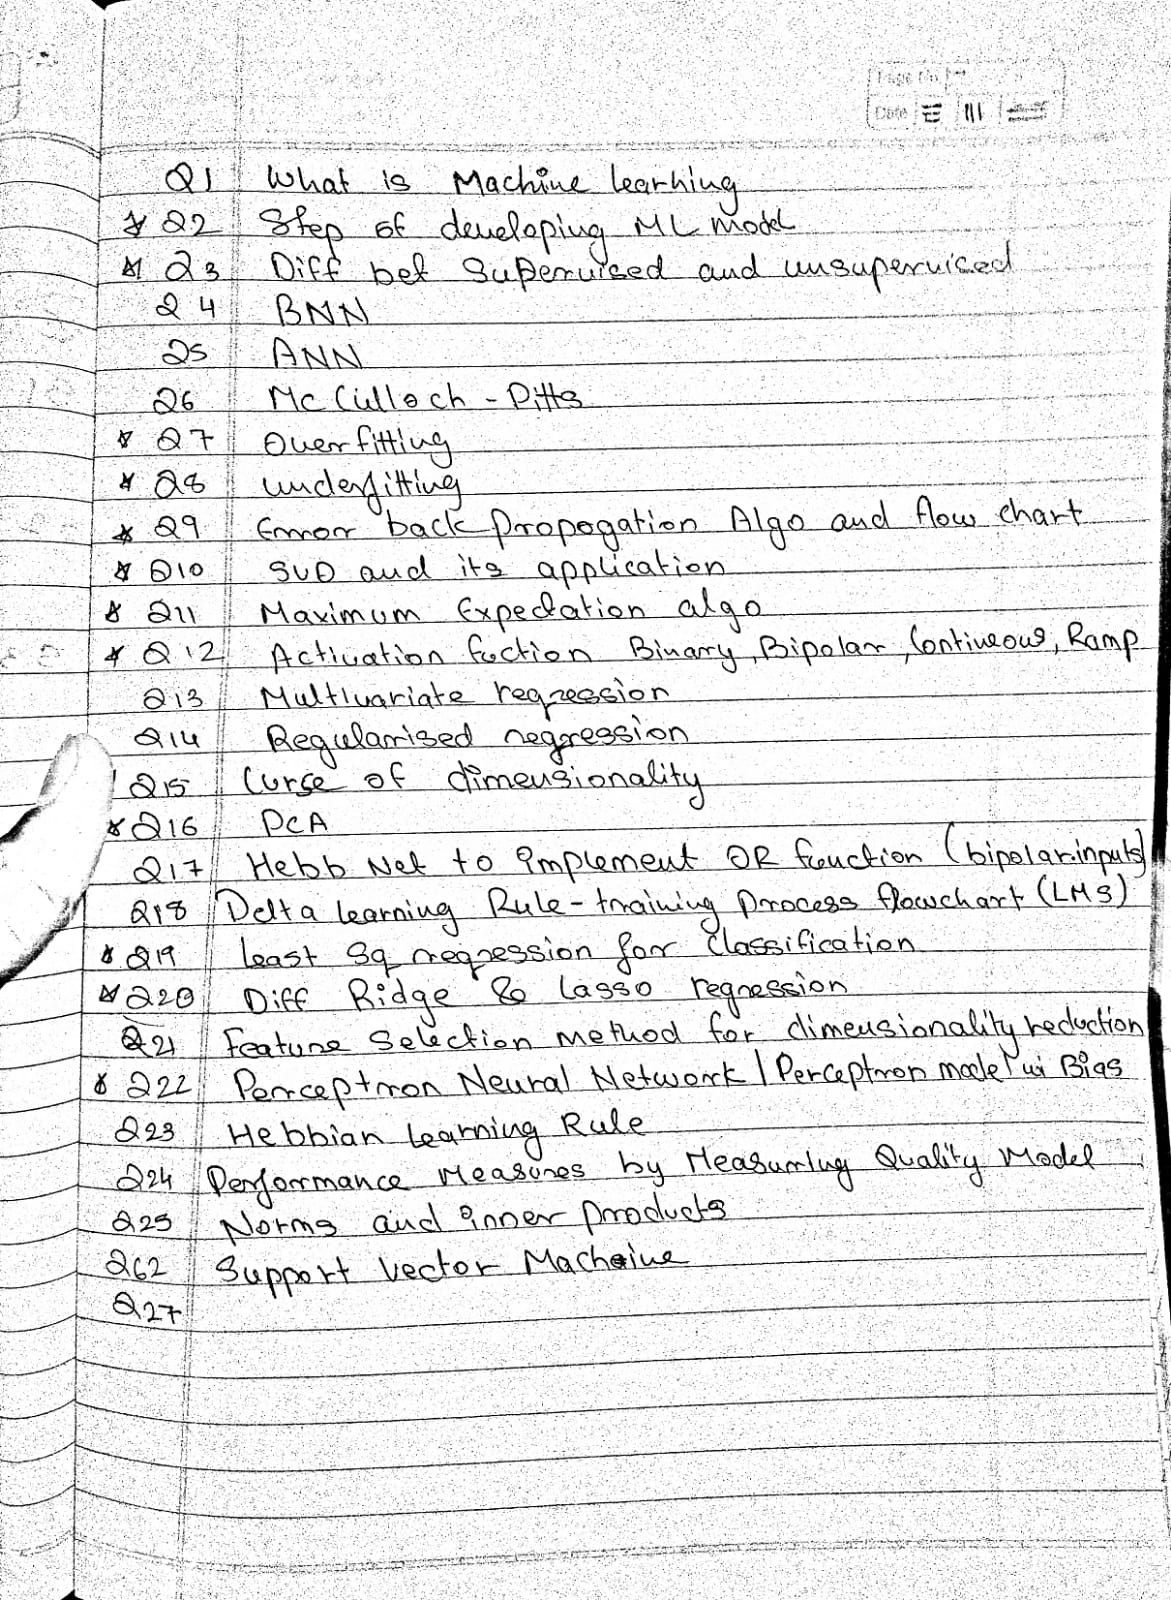 Page No.
Date
Q1 What is Machine learning
Q2 Step of developing ML model
Q3 Diff bet Supervised and unsupervised
Q4 BNN
Q5 ANN
Q6 McCulloch - Pitts
Q7 Overfitting
Q8 underfitting
Q9 Error back Propogation Algo and flow chart
Q10 SVD and its application
Q11 Maximum Expectation algo
Q12 Activation fuction Binary, Bipolar, Contineous, Ramp
Q13 Multivariate regression
Q14 Regularised regression
Q15 Curse of dimensionality
Q16 PCA
Q17 Hebb Net to implement OR function (bipolar inputs)
Q18 Delta learning Rule - training Process flowchart (LMS)
Q19 least Sq regression for Classification
Q20 Diff Ridge & Lasso regression
Q21 Feature Selection method for dimensionality reduction
Q22 Perceptron Neural Network / Perceptron model wi Bias
Q23 Hebbian Learning Rule
Q24 Performance Measures by Measuring Quality Model
Q25 Norms and inner products
Q262 Support Vector Machine
Q27